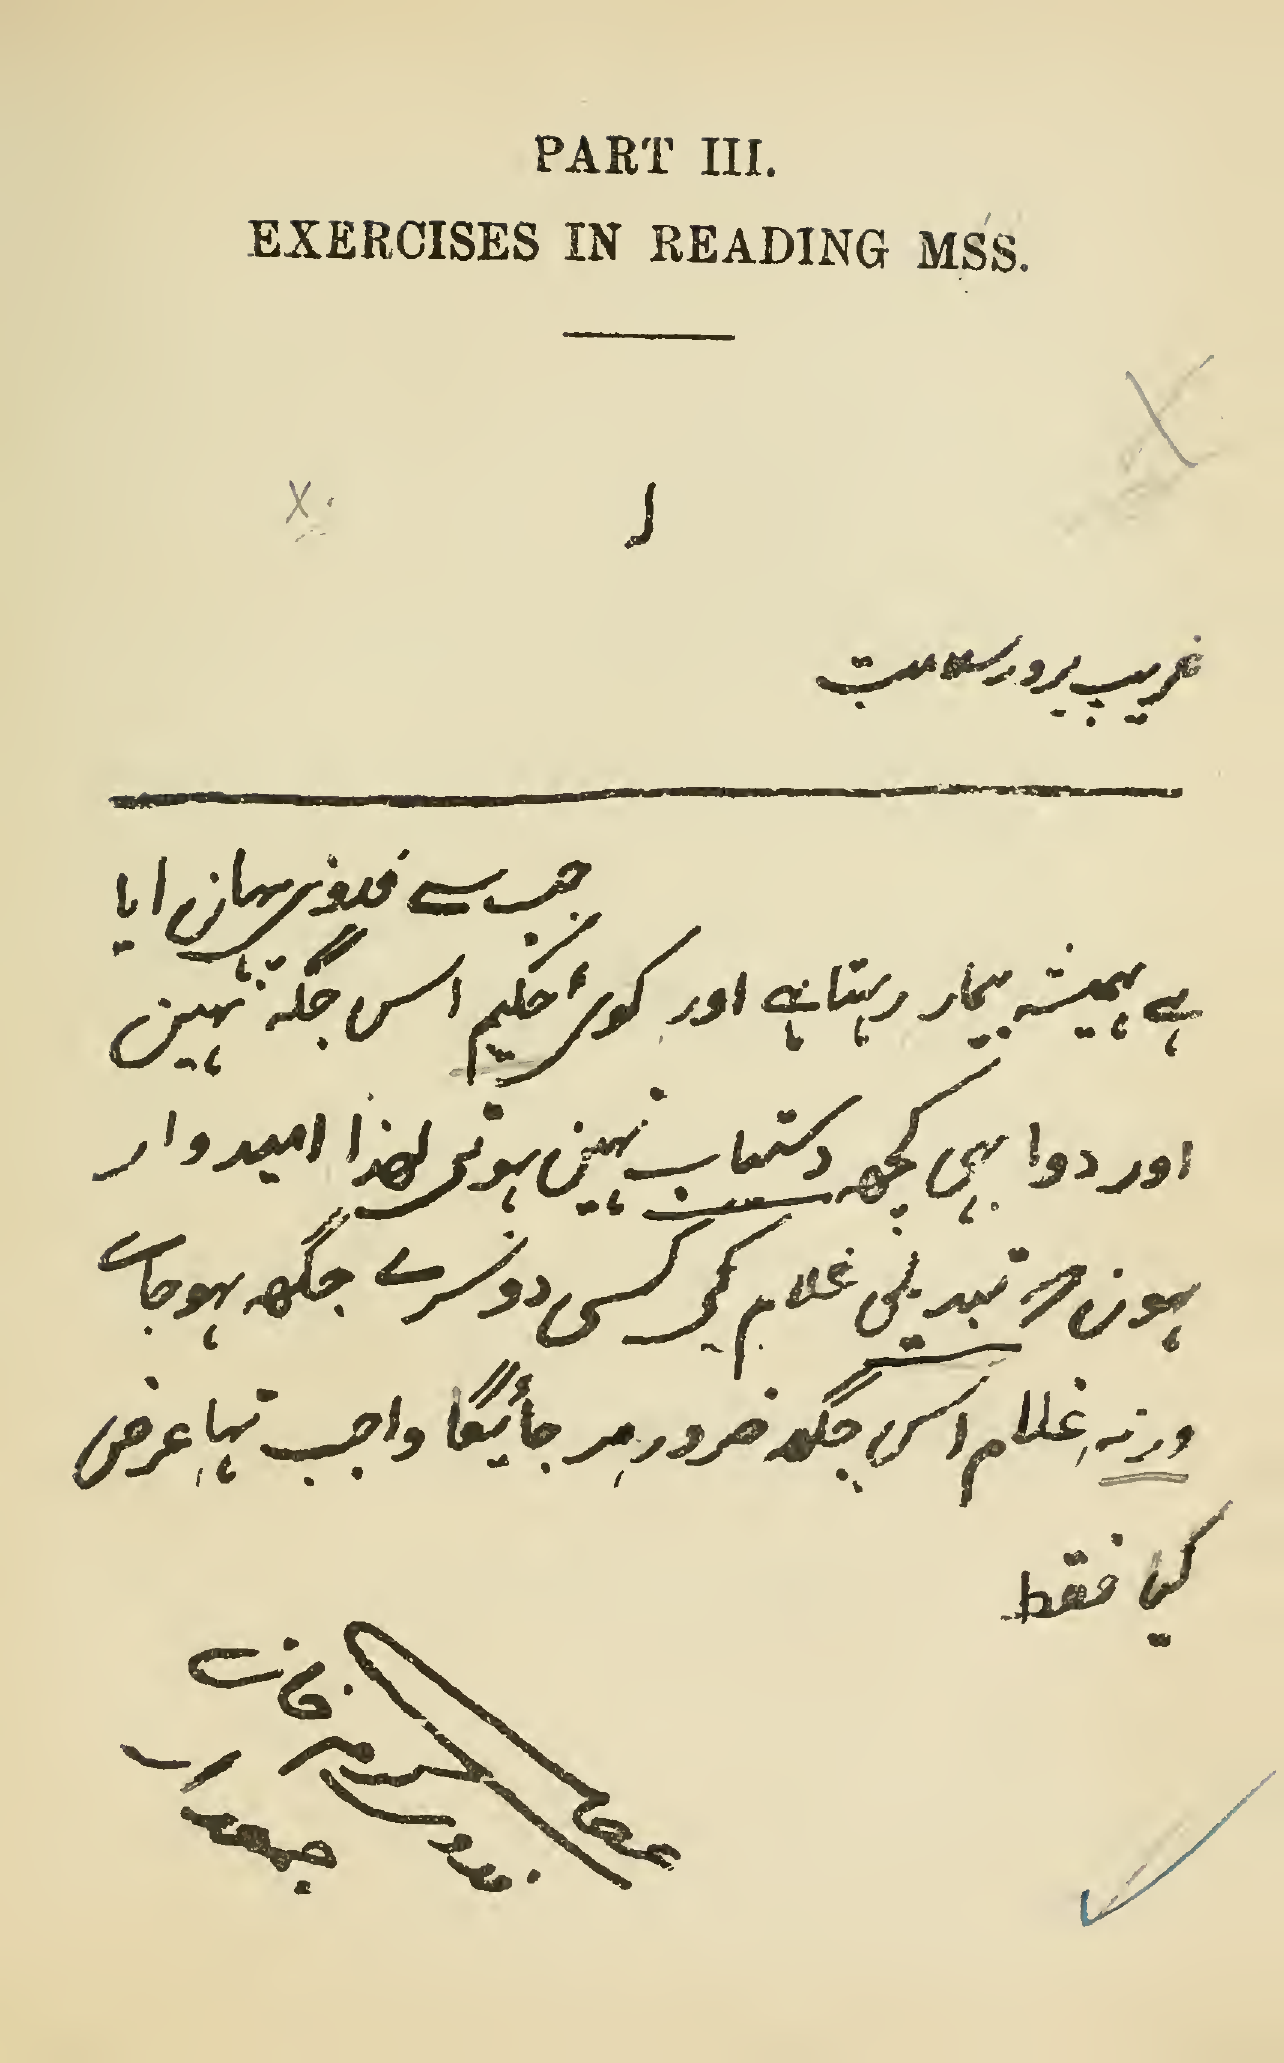 PART III.
EXERCISES IN READING MSS.
۱
غریب پرور سلامت
جب سے فدوی یہان ایا
ہے ہمیشہ بیمار رہتا ہے اور کوئی حکیم اس جگہ نہین
اور دوا بہی کچھ دستیاب نہین ہوتی لھذا امیدوار
ہون کہ تبدیلی غلام کی کسی دوسرے جگھہ ہوجاے
ورنہ غلام اس جگہہ ضرور مر جائیگا واجب تہا عرض
کیا فقط
فدوی
خان
جمعدار